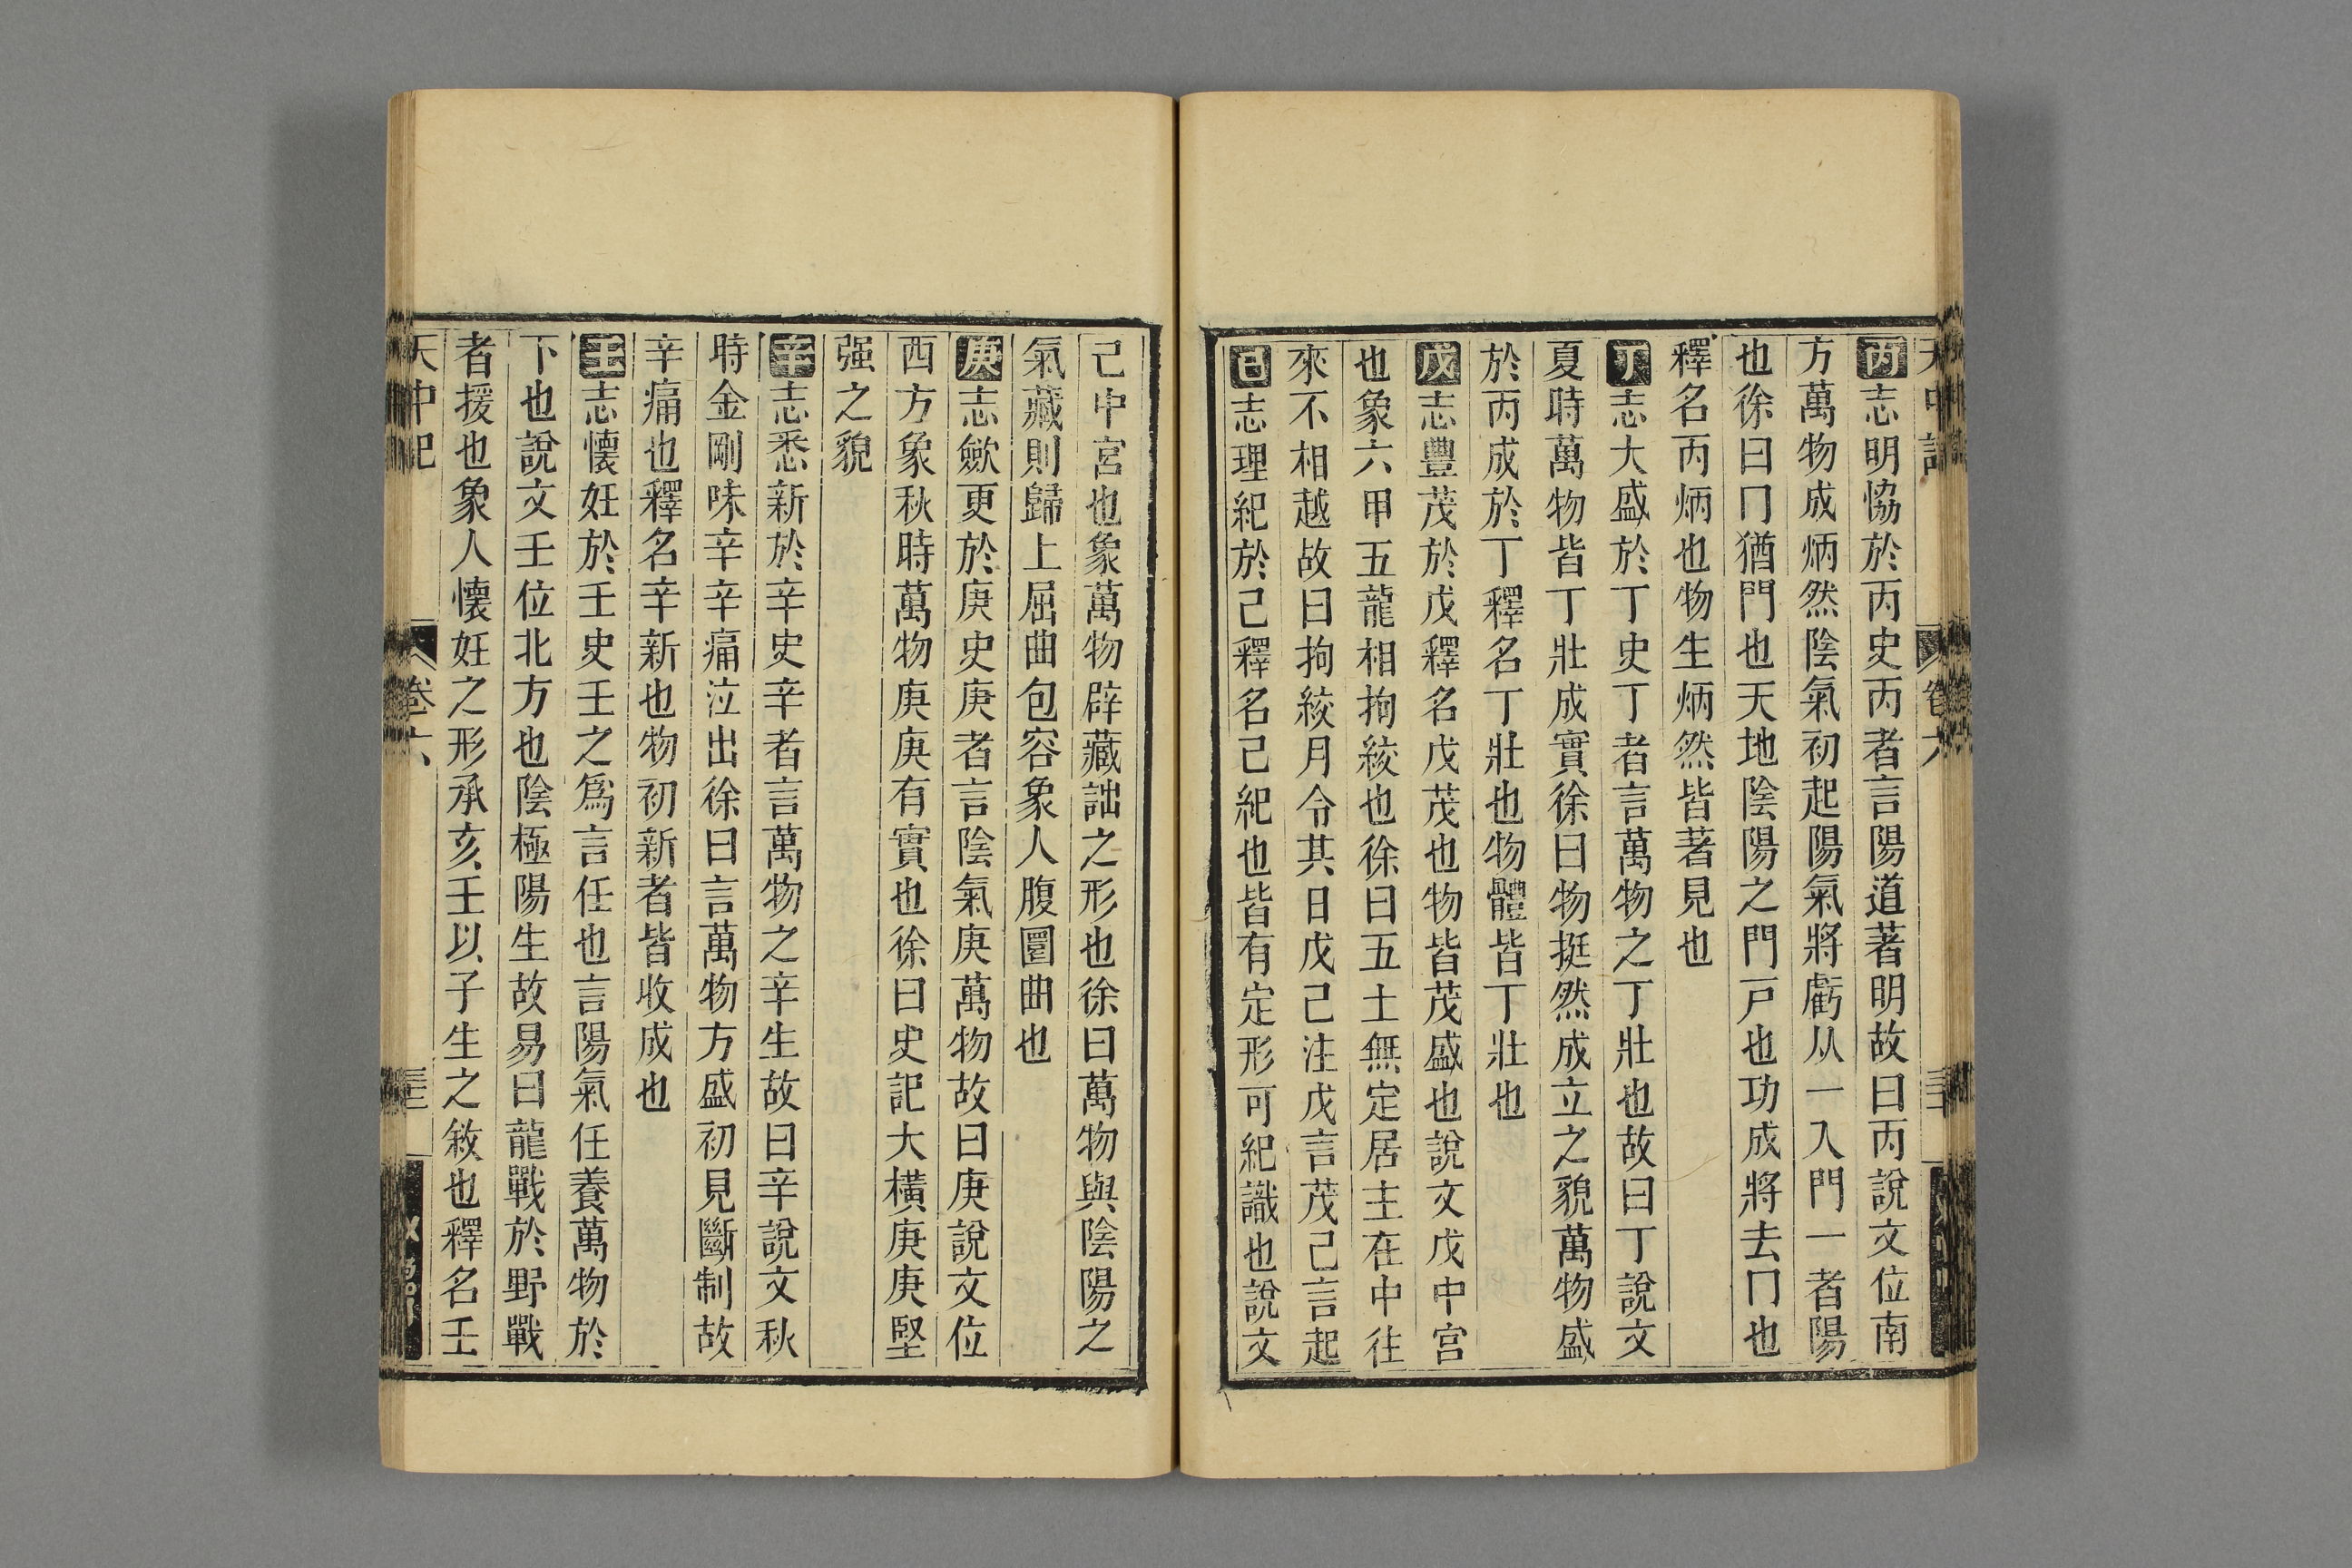 丙志明恊於丙史丙者言陽道著明故曰丙說文位南
方萬物成炳然陰氣初起陽氣將虧从一入門一者陽
也徐曰冂猶門也天地陰陽之門戸也功成將去冂也
釋名丙炳也物生炳然皆著見也
丁志大盛於丁史丁者言萬物之丁壯也故曰丁說文
夏時萬物皆丁壯成實徐曰物挺然成立之貌萬物盛
於丙成於丁釋名丁壯也物體皆丁壯也
戊志豐茂於戊釋名戊茂也物皆茂盛也說文戊中宫
也象六甲五龍相拘絞也徐曰五土無定居主在中往
來不相越故曰拘絞月令其日戊己注戊言茂己言起
己志理紀於己釋名己紀也皆有定形可紀識也說文
天中記
卷六
己中宮也象萬物辟藏詘之形也徐曰萬物與陰陽之
氣藏則歸上屈曲包容象人腹圜曲也
庚志斂更於庚史庚者言陰氣庚萬物故曰庚說文位
西方象秋時萬物庚庚有實也徐曰史記大橫庚庚堅
强之貌
辛志悉新於辛史辛者言萬物之辛生故曰辛說文秋
時金剛味辛辛痛泣出徐曰言萬物方盛初見斷制故
辛痛也釋名辛新也物初新者皆收成也
壬志懐妊於壬史壬之爲言任也言陽氣任養萬物於
下也說文壬位北方也陰極陽生故易曰龍戰於野戰
者援也象人懐妊之形承亥壬以子生之敘也釋名壬
天中記
卷六